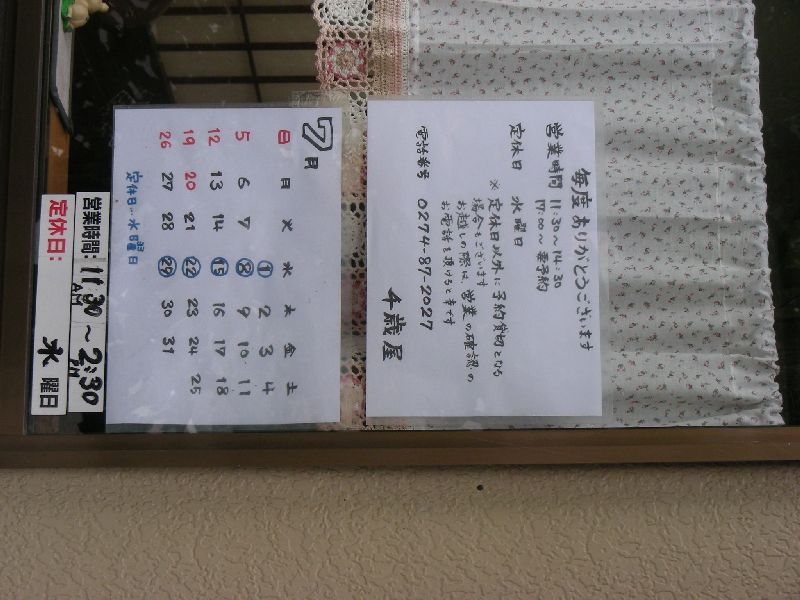 毎度ありがとうございます
営業時間 11:30〜14:30
17:00〜要予約
定休日 水曜日
※定休日以外に予約貸切となる
場合もございます
お越しの際は営業の確認の
お電話を頂けると幸です
電話番号 0274-87-2027
千歳屋
7月
日 月 火 水 木 金 土
① 2 3 4
5 6 7 ⑧ 9 10 11
12 13 14 ⑮ 16 17 18
19 20 21 ㉒ 23 24 25
26 27 28 ㉙ 30 31
定休日…水曜日
営業時間: 11:30AM〜2:30PM
定休日: 水曜日